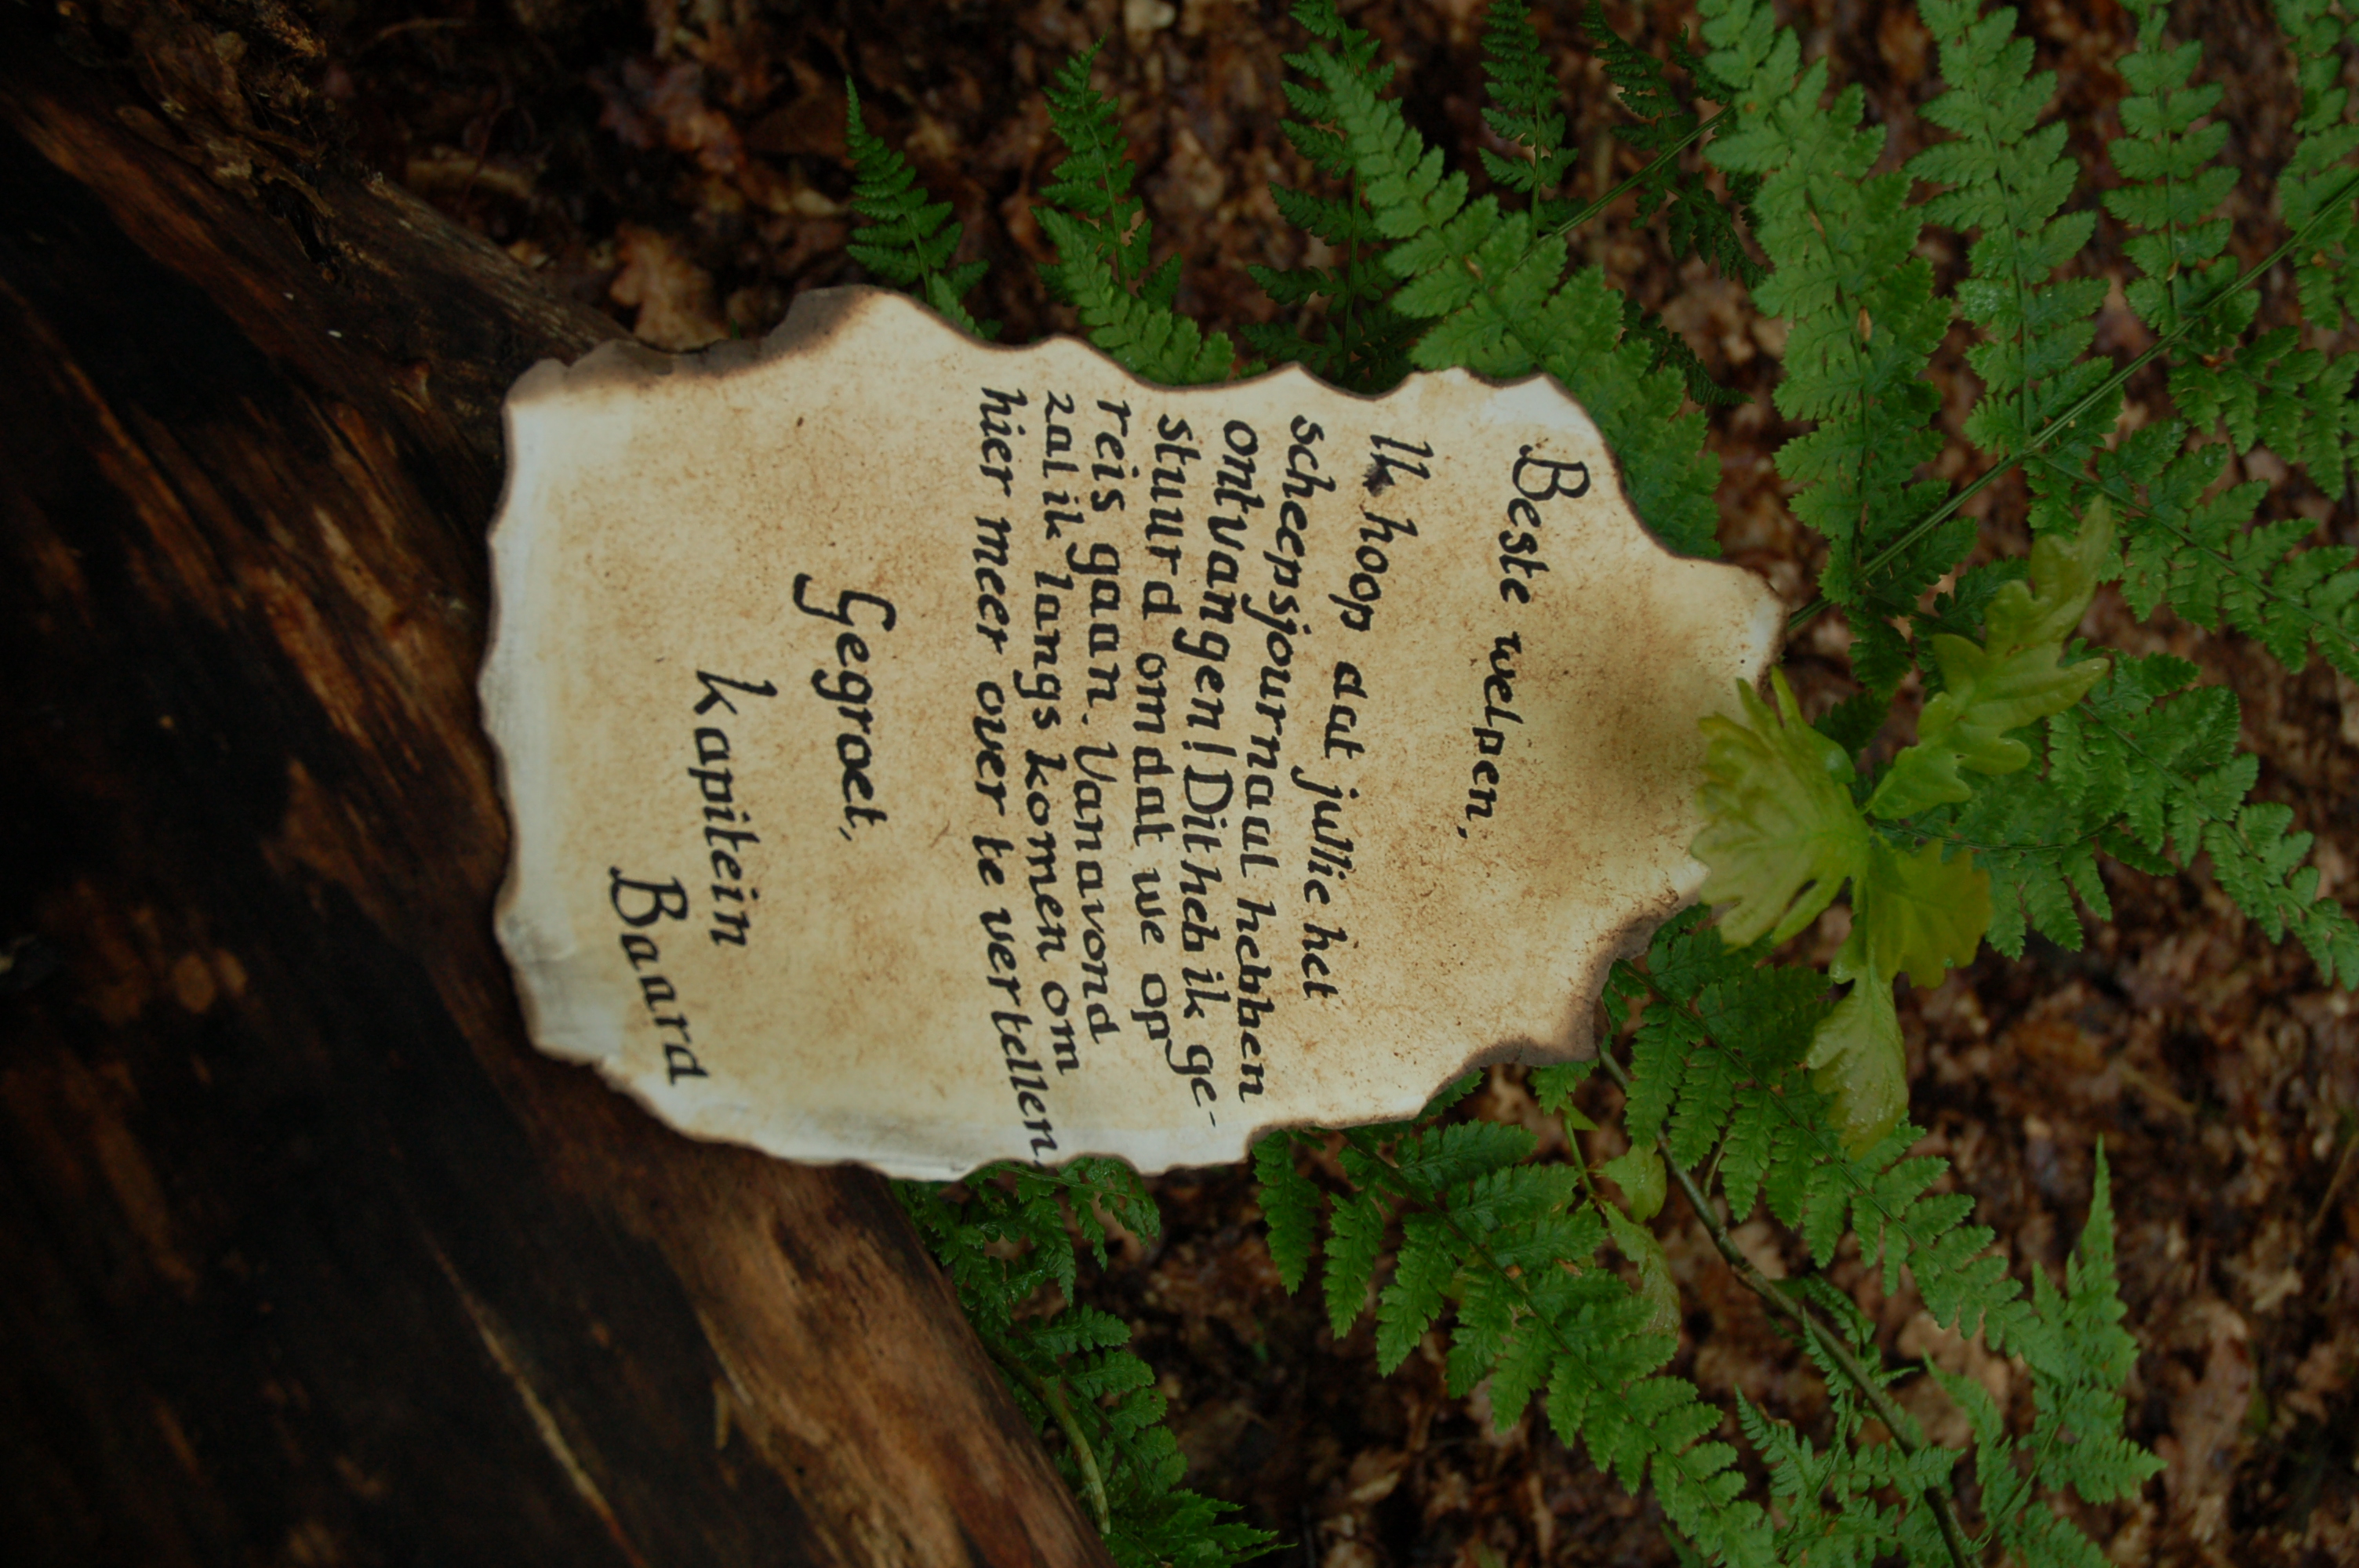 Beste welpen,
Ik hoop dat jullie het
scheepsjournaal hebben
ontvangen! Dit heb ik ge-
stuurd omdat we op
reis gaan. Vanavond
zal ik langs komen om
hier meer over te vertellen.
Gegroet,
Kapitein
Baard